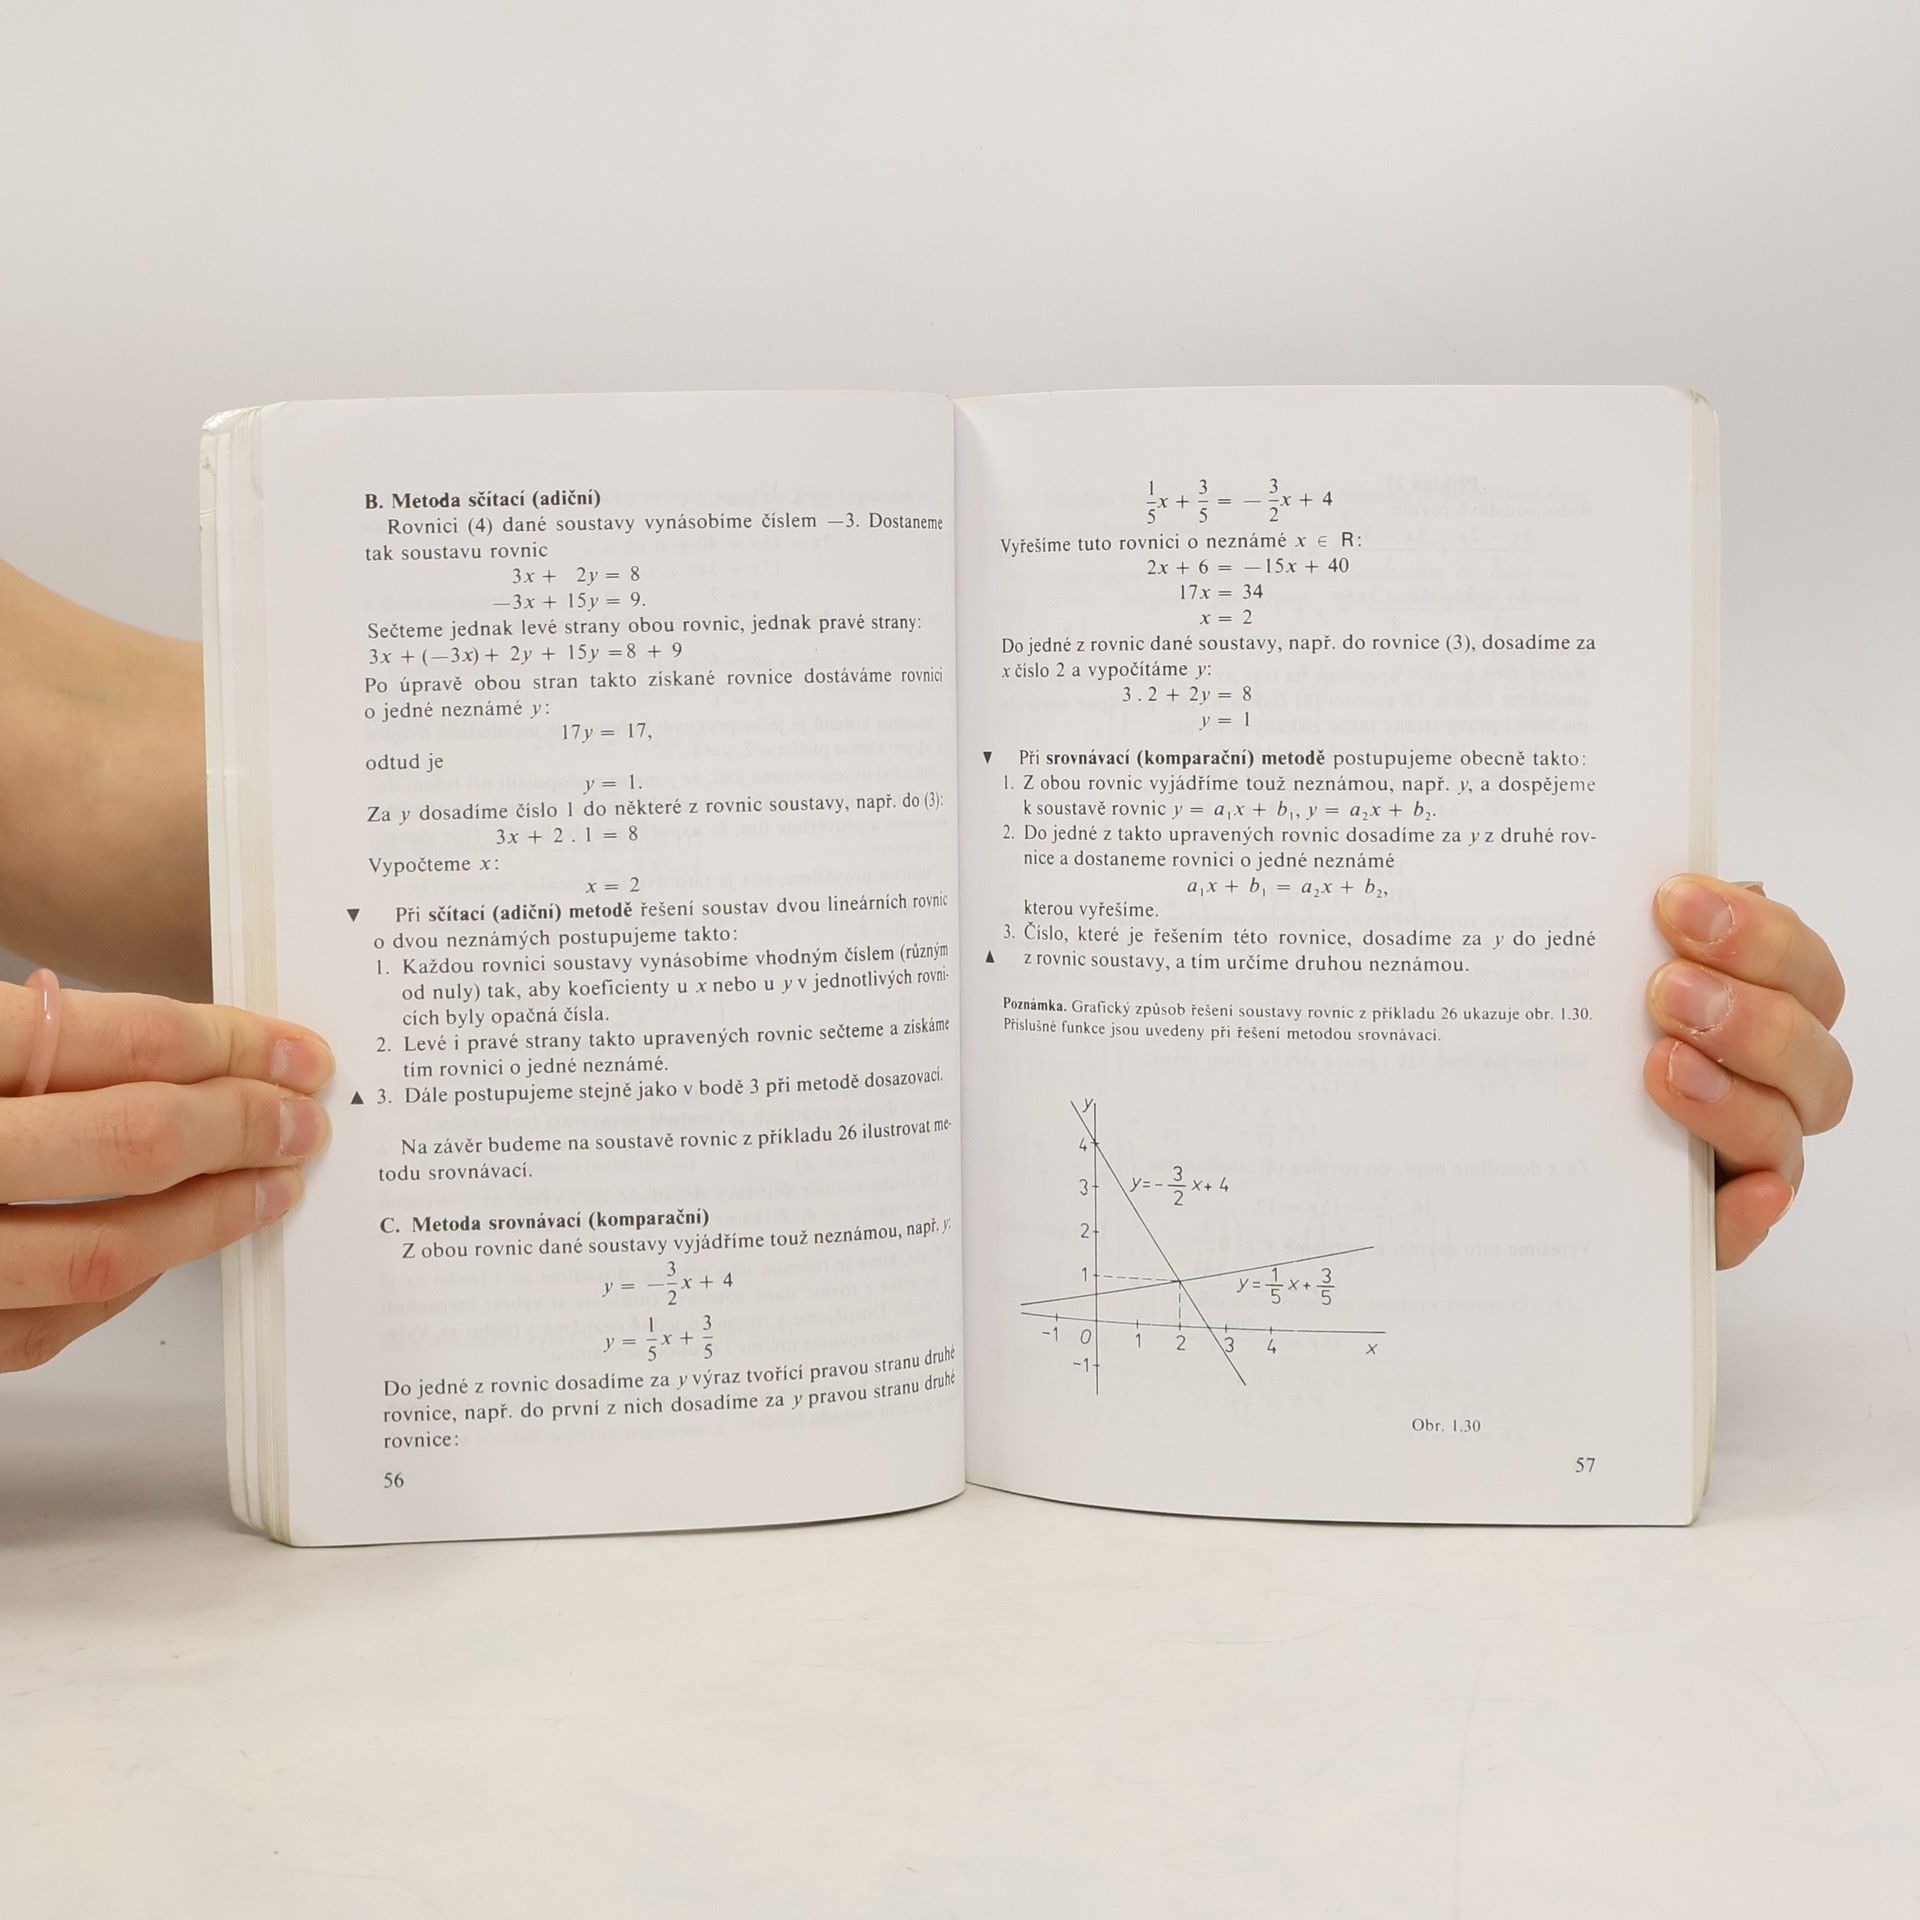 B. Metoda sčítací (adiční)
Rovnici (4) dané soustavy vynásobíme číslem —3. Dostaneme
tak soustavu rovnic
3x + 2y = 8
—3x + 15y = 9.
Sečteme jednak levé strany obou rovnic, jednak pravé strany:
3x + (—3x) + 2y + 15y = 8 + 9
Po úpravě obou stran takto získané rovnice dostáváme rovnici
o jedné neznámé y:
17y = 17,
odtud je
y = 1.
Za y dosadíme číslo 1 do některé z rovnic soustavy, např. do (3):
3x + 2 . 1 = 8
Vypočteme x:
x = 2
▼ Při sčítací (adiční) metodě řešení soustav dvou lineárních rovnic
o dvou neznámých postupujeme takto:
1. Každou rovnici soustavy vynásobíme vhodným číslem (různým
od nuly) tak, aby koeficienty u x nebo u y v jednotlivých rovni-
cích byly opačná čísla.
2. Levé i pravé strany takto upravených rovnic sečteme a získáme
tím rovnici o jedné neznámé.
▲ 3. Dále postupujeme stejně jako v bodě 3 při metodě dosazovací.
Na závěr budeme na soustavě rovnic z příkladu 26 ilustrovat me-
todu srovnávací.
C. Metoda srovnávací (komparační)
Z obou rovnic dané soustavy vyjádříme touž neznámou, např. y:
y = —3/2x + 4
y = 1/5x + 3/5
Do jedné z rovnic dosadíme za y výraz tvořící pravou stranu druhé
rovnice, např. do první z nich dosadíme za y pravou stranu druhé
rovnice:
56
1/5x + 3/5 = —3/2x + 4
Vyřešíme tuto rovnici o neznámé x ∈ R:
2x + 6 = —15x + 40
17x = 34
x = 2
Do jedné z rovnic dané soustavy, např. do rovnice (3), dosadíme za
x číslo 2 a vypočítáme y:
3 . 2 + 2y = 8
y = 1
▼ Při srovnávací (komparační) metodě postupujeme obecně takto:
1. Z obou rovnic vyjádříme touž neznámou, např. y, a dospějeme
k soustavě rovnic y = a₁x + b₁, y = a₂x + b₂.
2. Do jedné z takto upravených rovnic dosadíme za y z druhé rov-
nice a dostaneme rovnici o jedné neznámé
a₁x + b₁ = a₂x + b₂,
kterou vyřešíme.
3. Číslo, které je řešením této rovnice, dosadíme za y do jedné
▲ z rovnic soustavy, a tím určíme druhou neznámou.
Poznámka. Grafický způsob řešení soustavy rovnic z příkladu 26 ukazuje obr. 1.30.
Příslušné funkce jsou uvedeny při řešení metodou srovnávací.
y
4
3
y=-3/2 x+4
2
1
y=1/5 x+3/5
-1 0 1 2 3 4 x
-1
Obr. 1.30
57